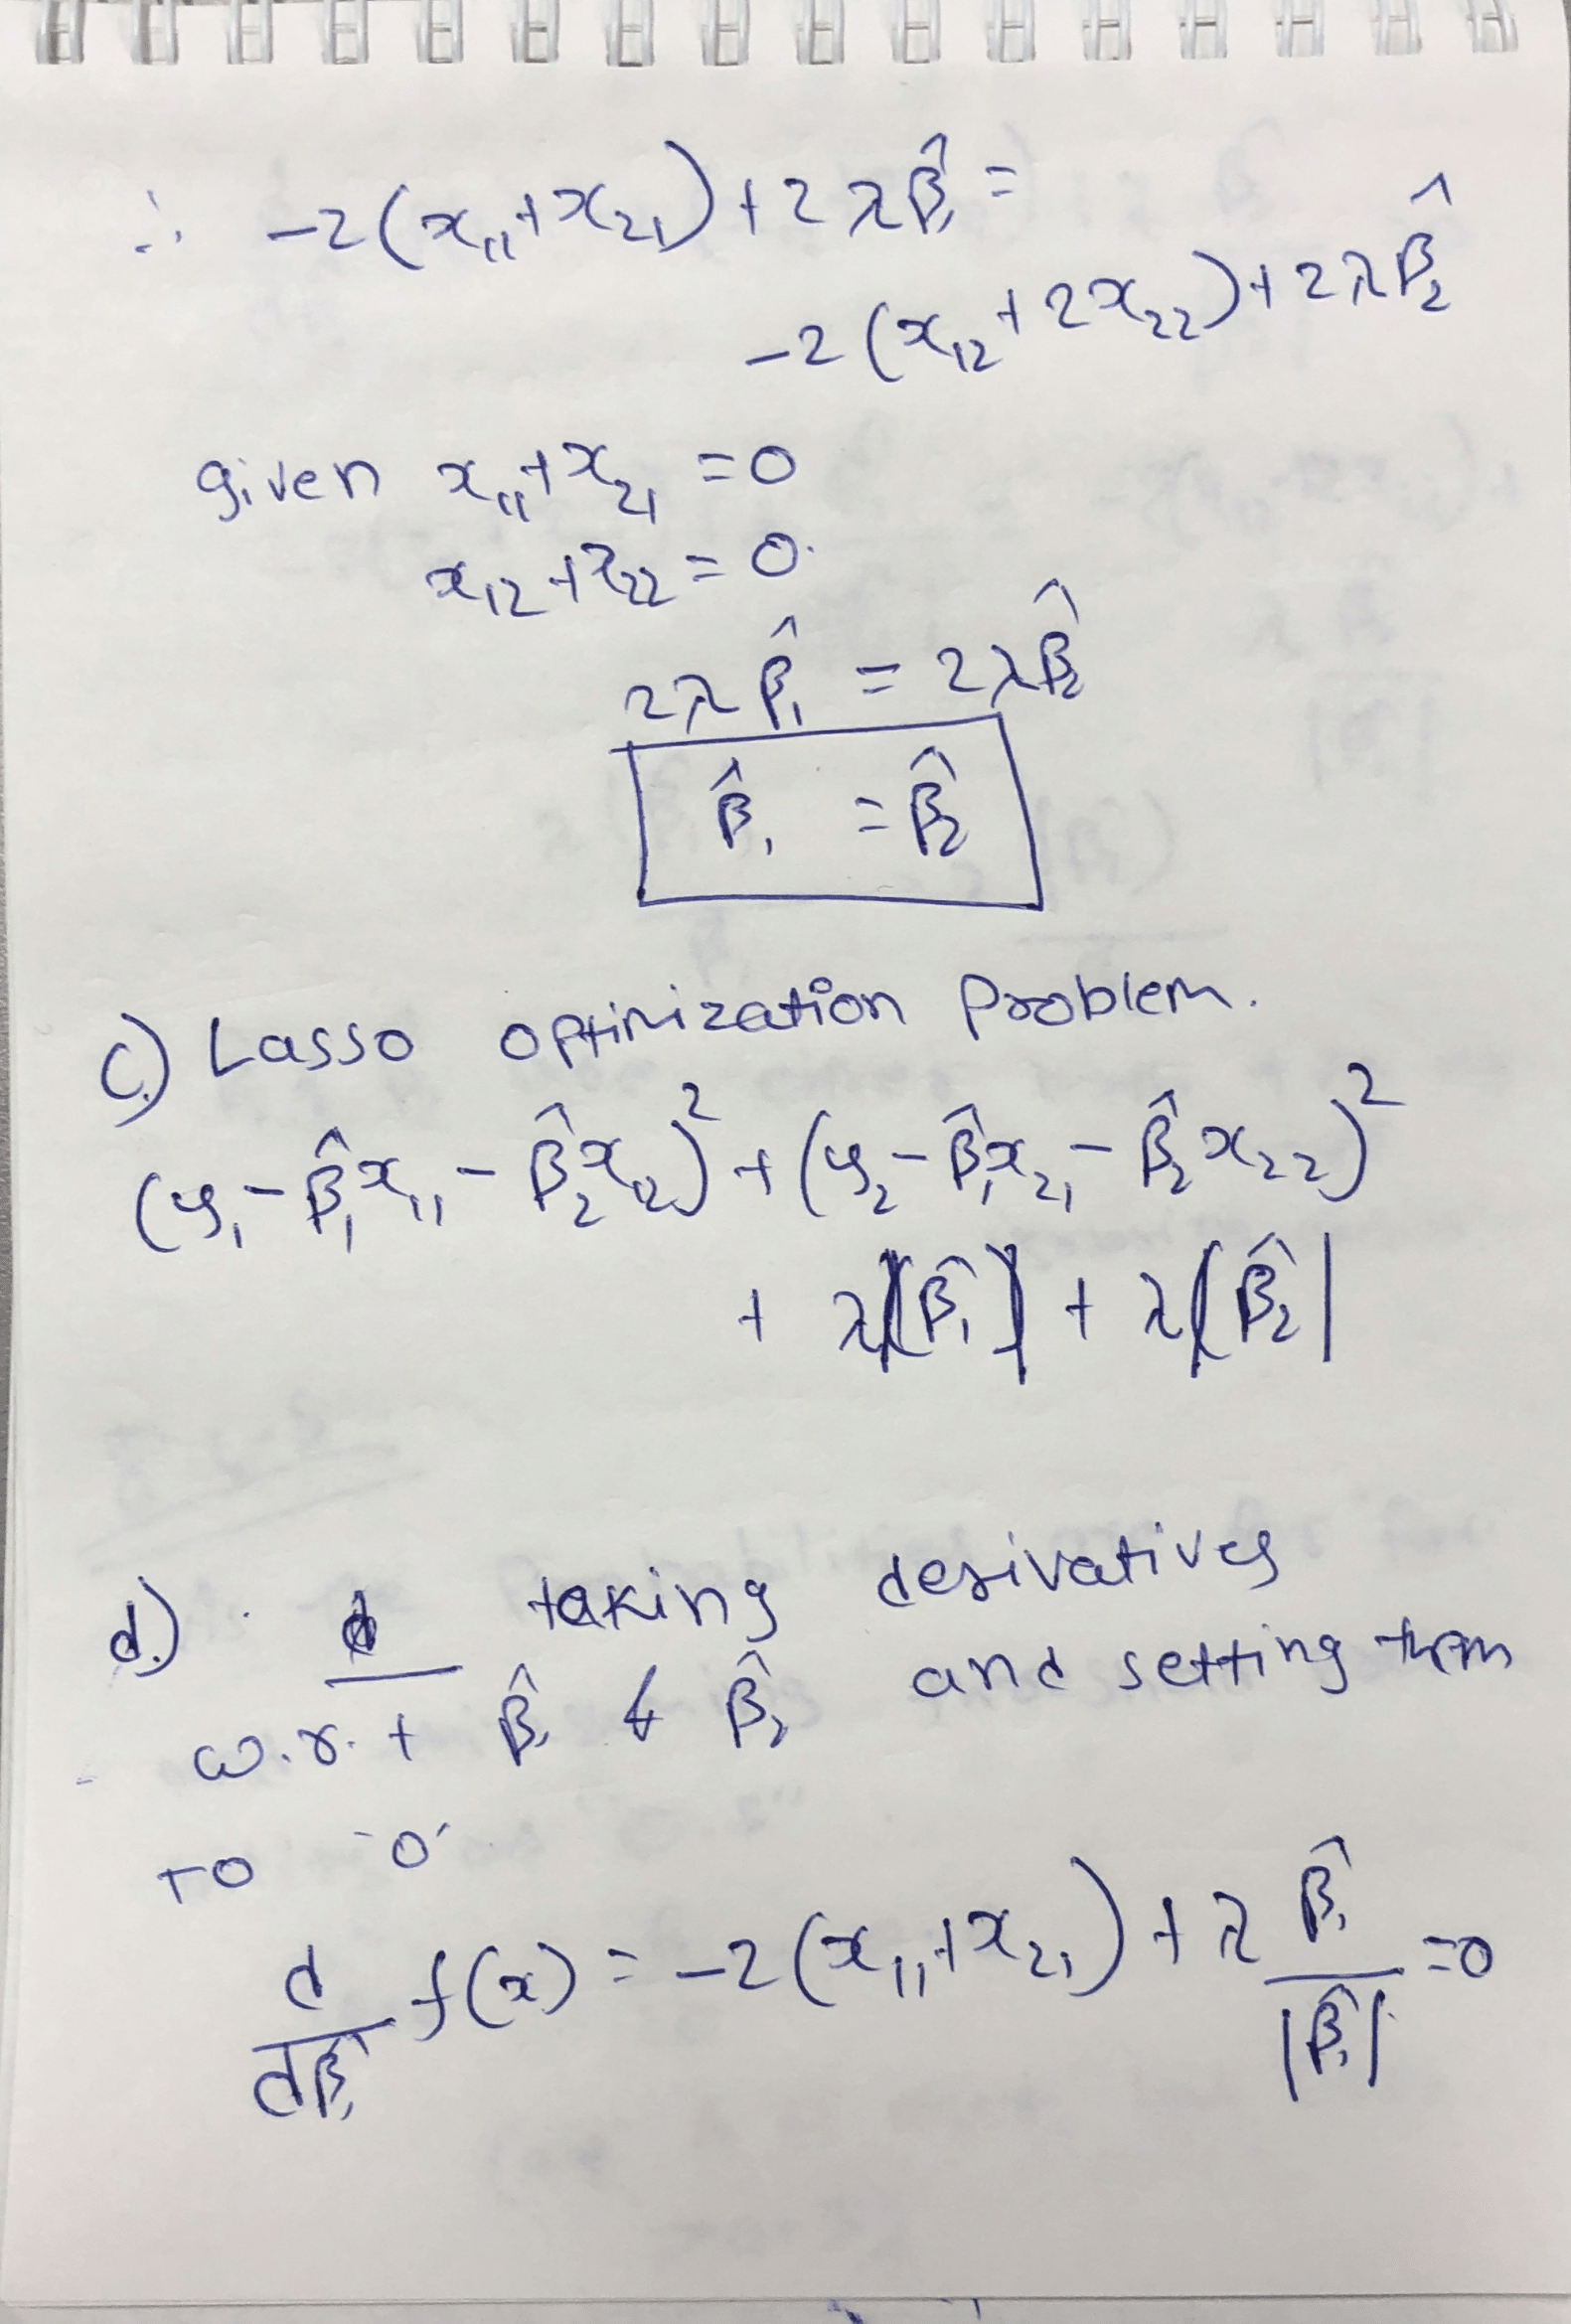 ∴ -2(x₁₁+x₂₁)+2λβ̂₁ =
-2(x₁₂+2x₂₂)+2λβ̂₂
given x₁₁+x₂₁ =0
x₁₂+x₂₂=0.
2λβ̂₁ = 2λβ̂₂
β̂₁ = β̂₂
c.) Lasso optimization Problem.
(y₁-β̂₁x₁₁-β̂₂x₁₂)²+(y₂-β̂₁x₂₁-β̂₂x₂₂)²
+ λ|β̂₁| + λ|β̂₂|
d.) d taking derivatives
w.r.t β̂₁ & β̂₂ and setting them
to '0'
d/dβ̂₁ f(x) = -2(x₁₁+x₂₁)+λ β̂₁/|β̂₁| =0